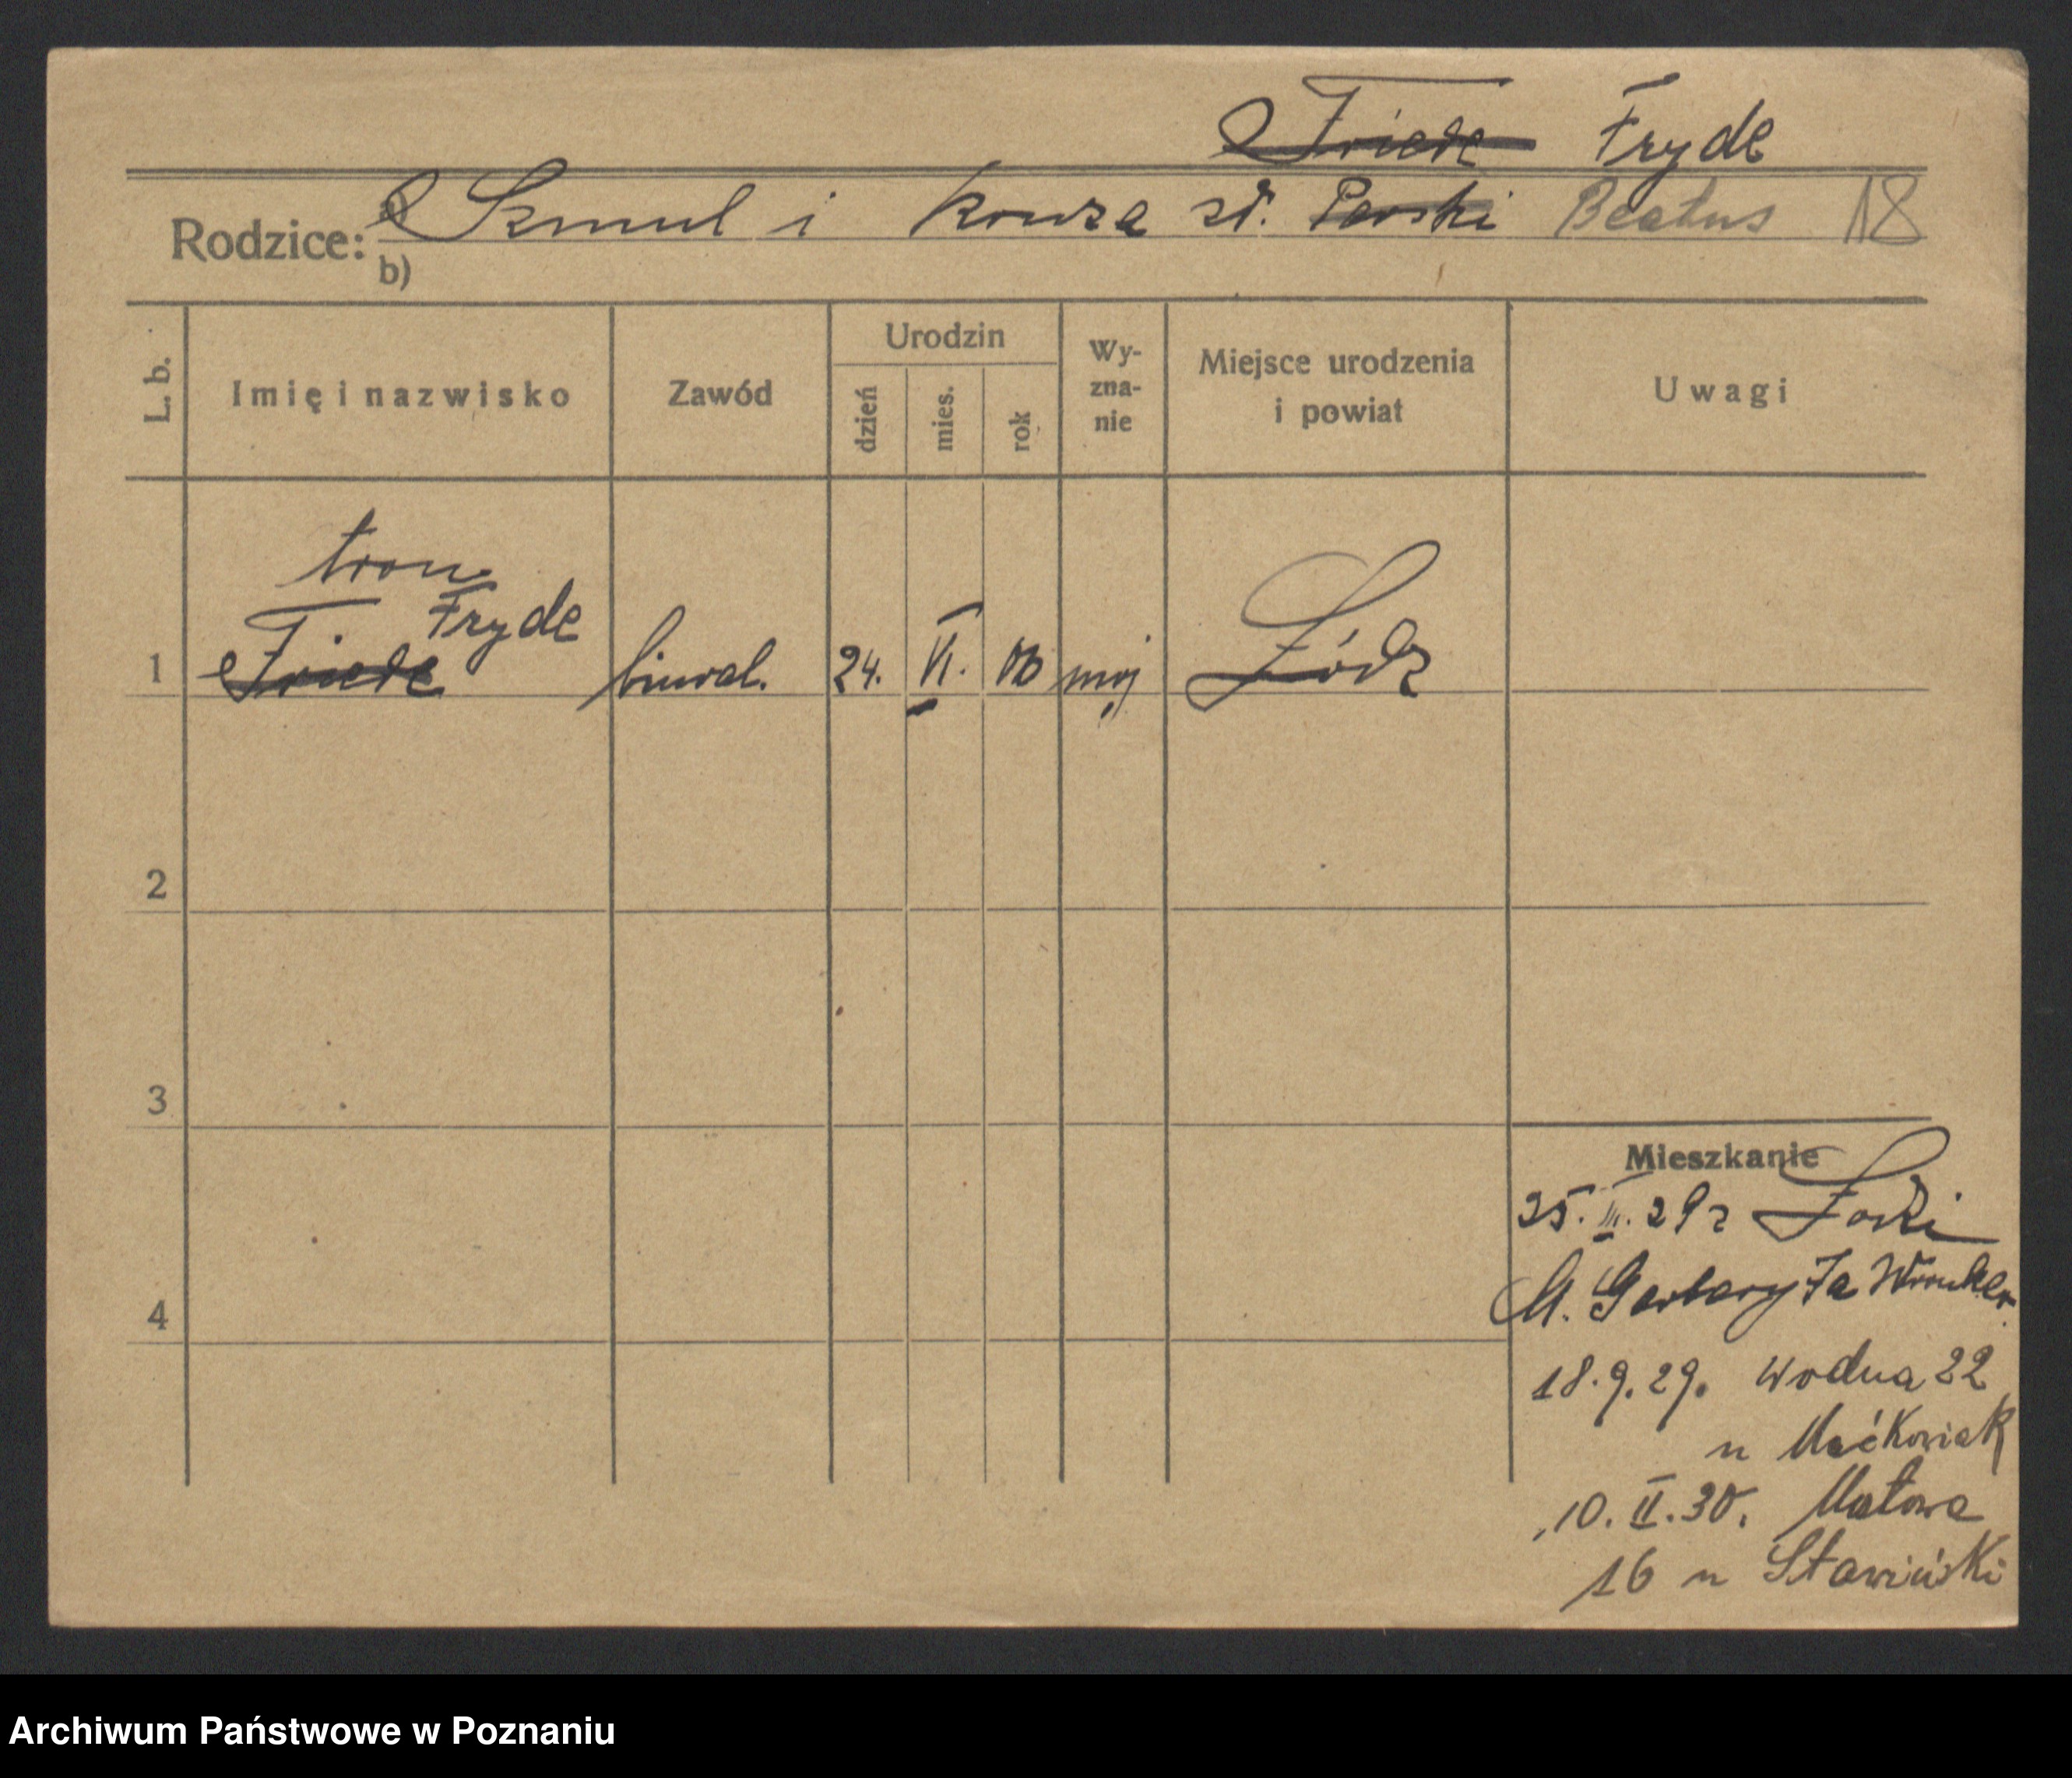 Friede Fryde
Rodzice: a) Szmul i Rouza zd. Parski Beatus 18
b)
L. b. Imię i nazwisko Zawód Urodzin dzień mies. rok Wy-zna-nie Miejsce urodzenia i powiat Uwagi
Fryde
1 Friede 24. VI. 06 moj Łódź
2
3
4
Mieszkanie
25. III. 29 z Łodzi
M. Garbary 7a
18.9.29. Wodna 22
u Maćkowiak
10. II. 30. Małowa
16 u Stawiński
Archiwum Państwowe w Poznaniu